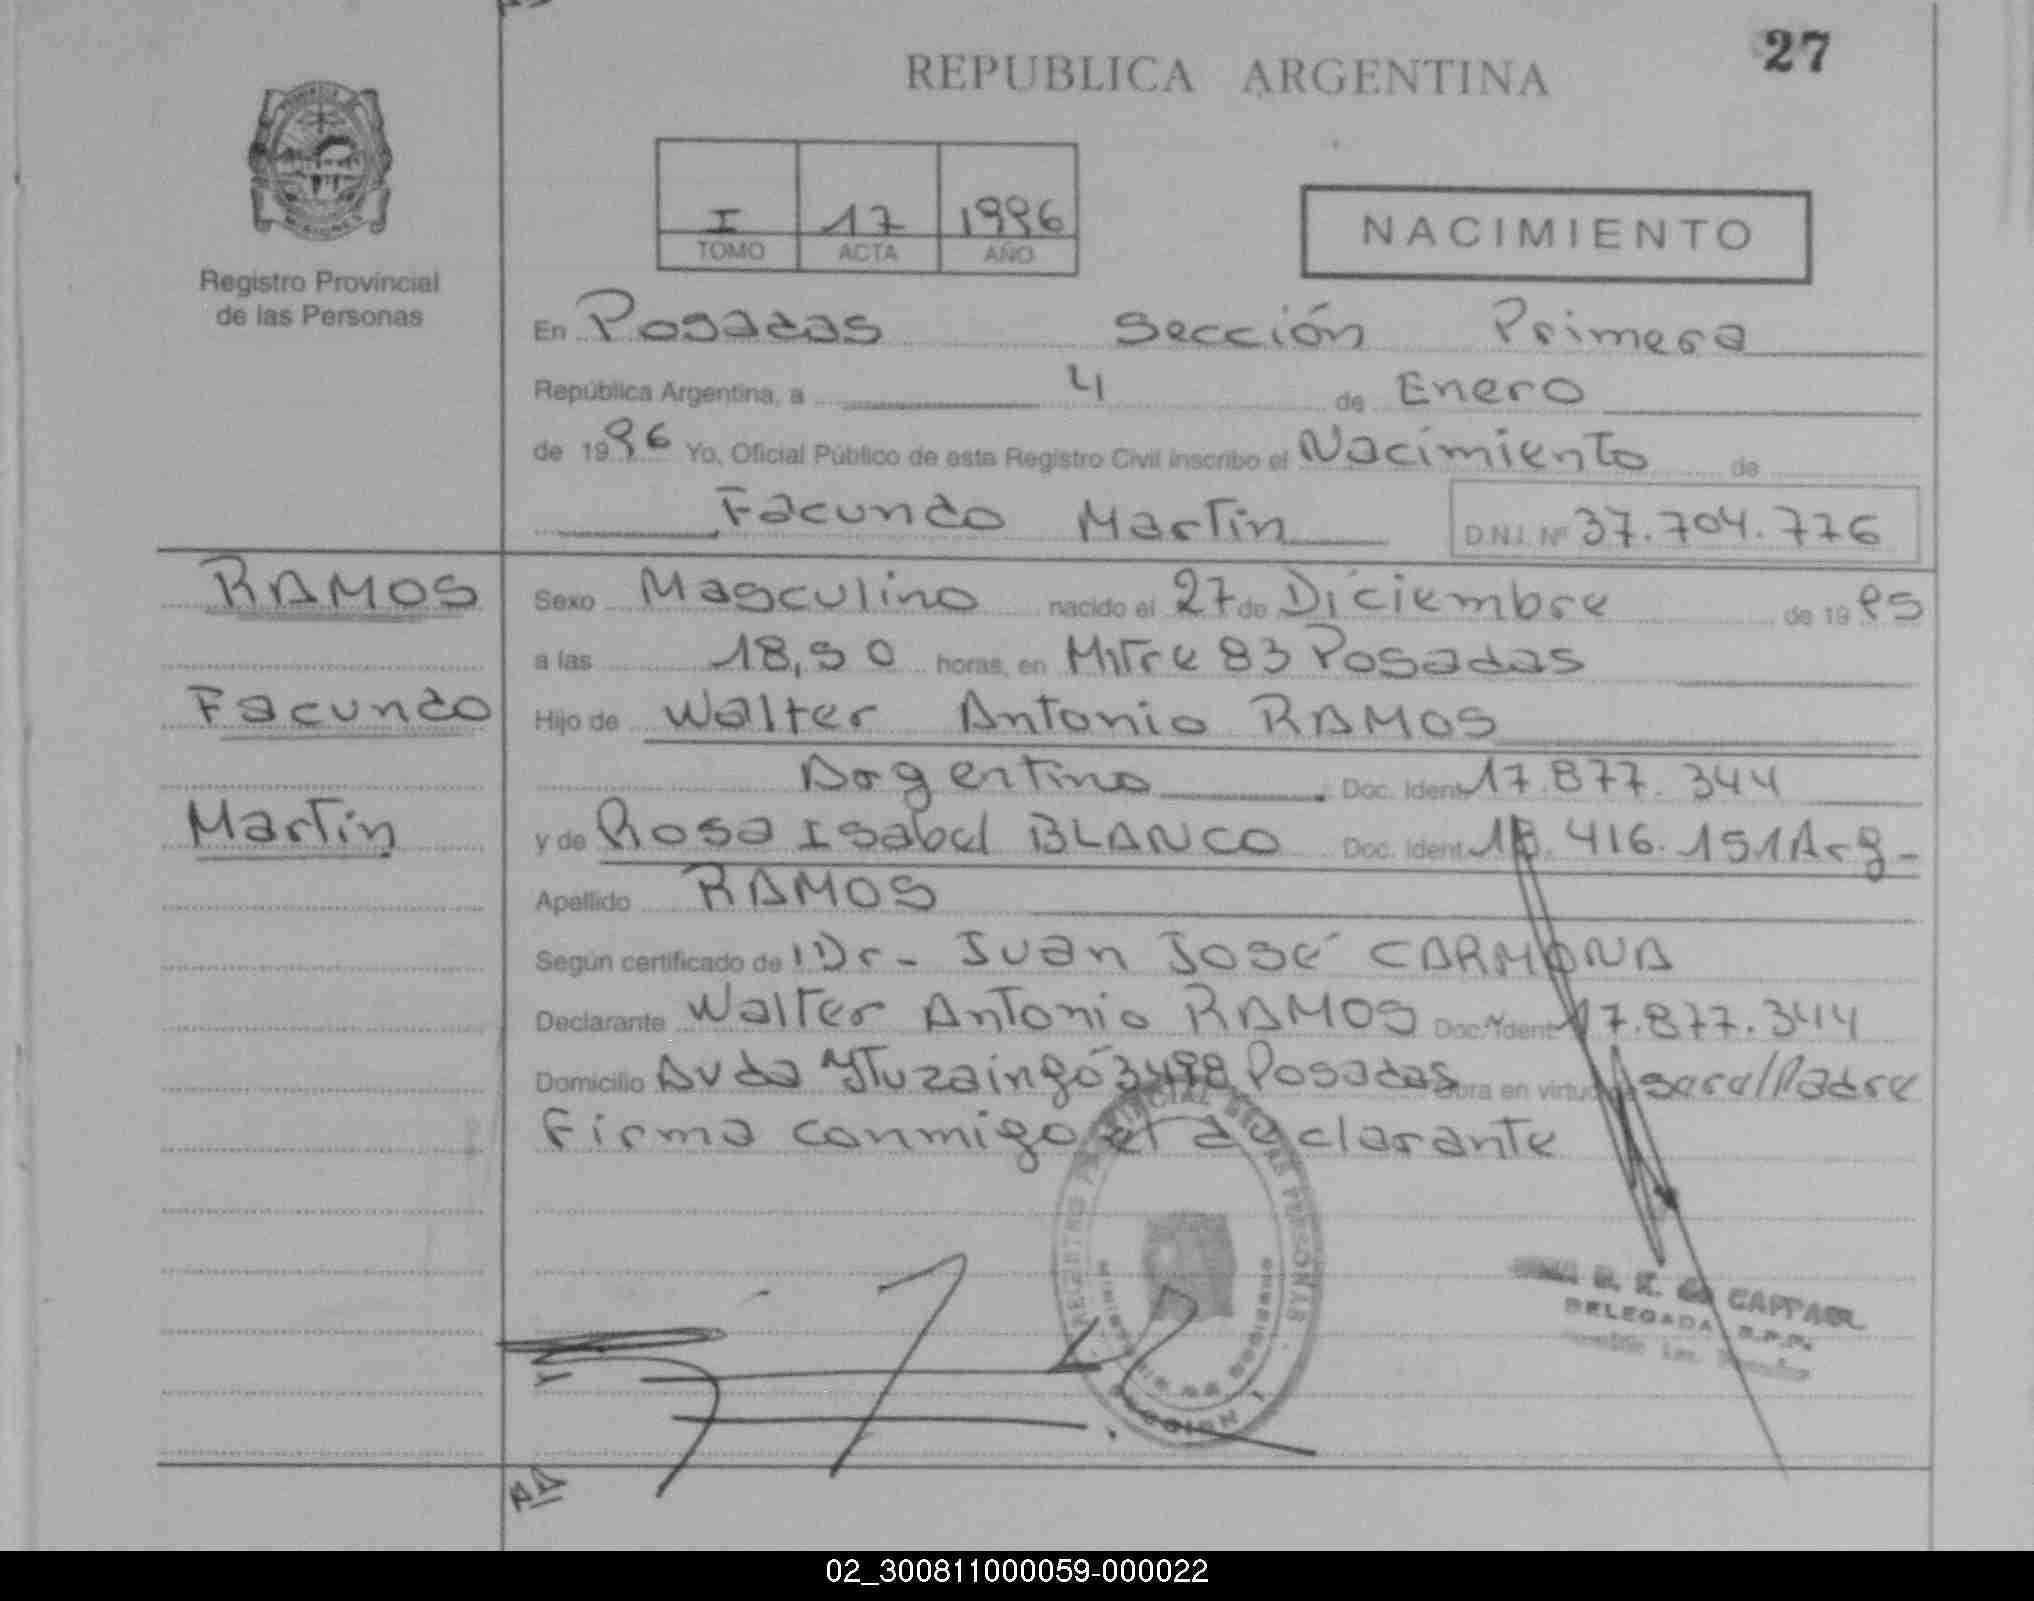 27
REPUBLICA ARGENTINA
PROVINCIA DE MISIONES
Registro Provincial
de las Personas
I 17 1996
TOMO ACTA AÑO
NACIMIENTO
En Posadas Sección Primera
República Argentina, a 4 de Enero
de 1996 Yo, Oficial Público de esta Registro Civil inscribo el Nacimiento de
Facundo Martín D.N.I. Nº 37.704.776
RAMOS
Facundo
Martín
Sexo Masculino nacido el 27 de Diciembre de 1995
a las 18,50 horas, en Mitre 83 Posadas
Hijo de Walter Antonio RAMOS
Argentino Doc. Ident 17.877.344
y de Rosa Isabel BLANCO Doc. Ident 18.416.151 Arg-
Apellido RAMOS
Según certificado de Dr- Juan José CARMONA
Declarante Walter Antonio RAMOS Doc. Ident 17.877.344
Domicilio Avda Ytuzaingó 3498 Posadas Obra en virtud de ser el Padre
Firma conmigo el declarante
REGISTRO PROVINCIAL DE LAS PERSONAS
MISIONES
SECCION 1
DELEGADA R.P.P.
02_300811000059-000022